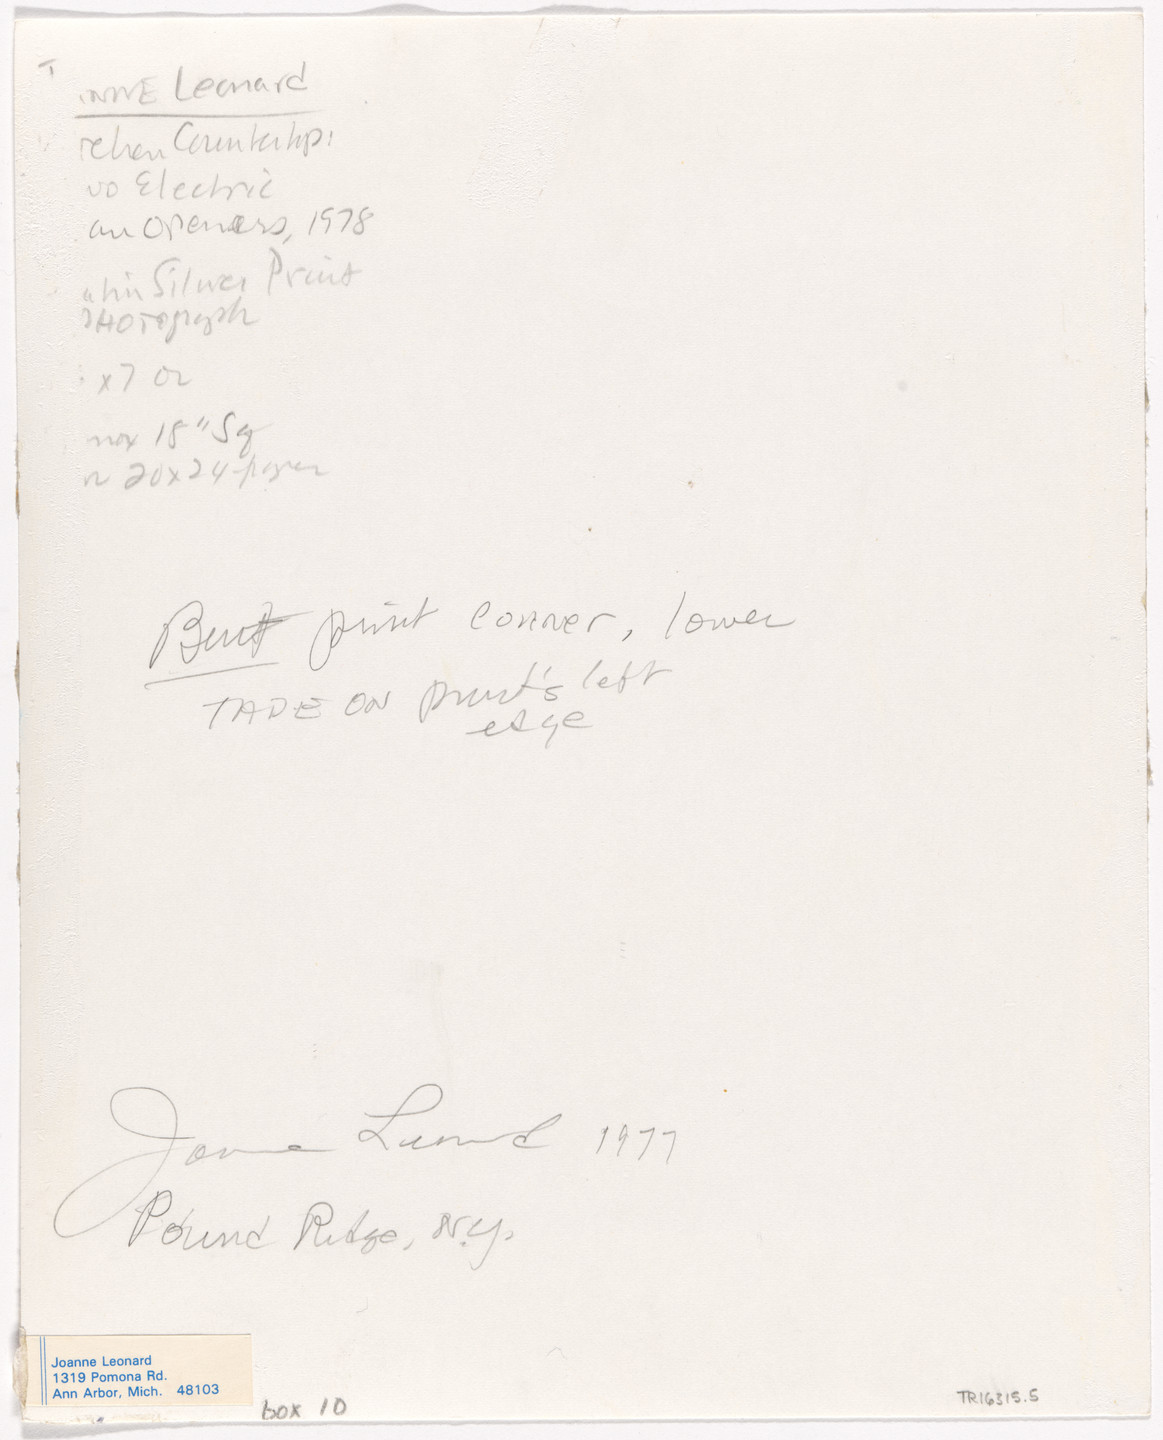 NNE Leonard
tchen Countertop:
wo Electric
an Openers, 1978
atin Silver Print
PHOTOgraph
x7 or
rox 18" Sq
on 20x24 paper
Bent print corner, lower
TAPE ON print's left
edge
Joanne Leonard 1977
Pound Ridge, N.Y.
Joanne Leonard
1319 Pomona Rd.
Ann Arbor, Mich. 48103
box 10
TR16315.5